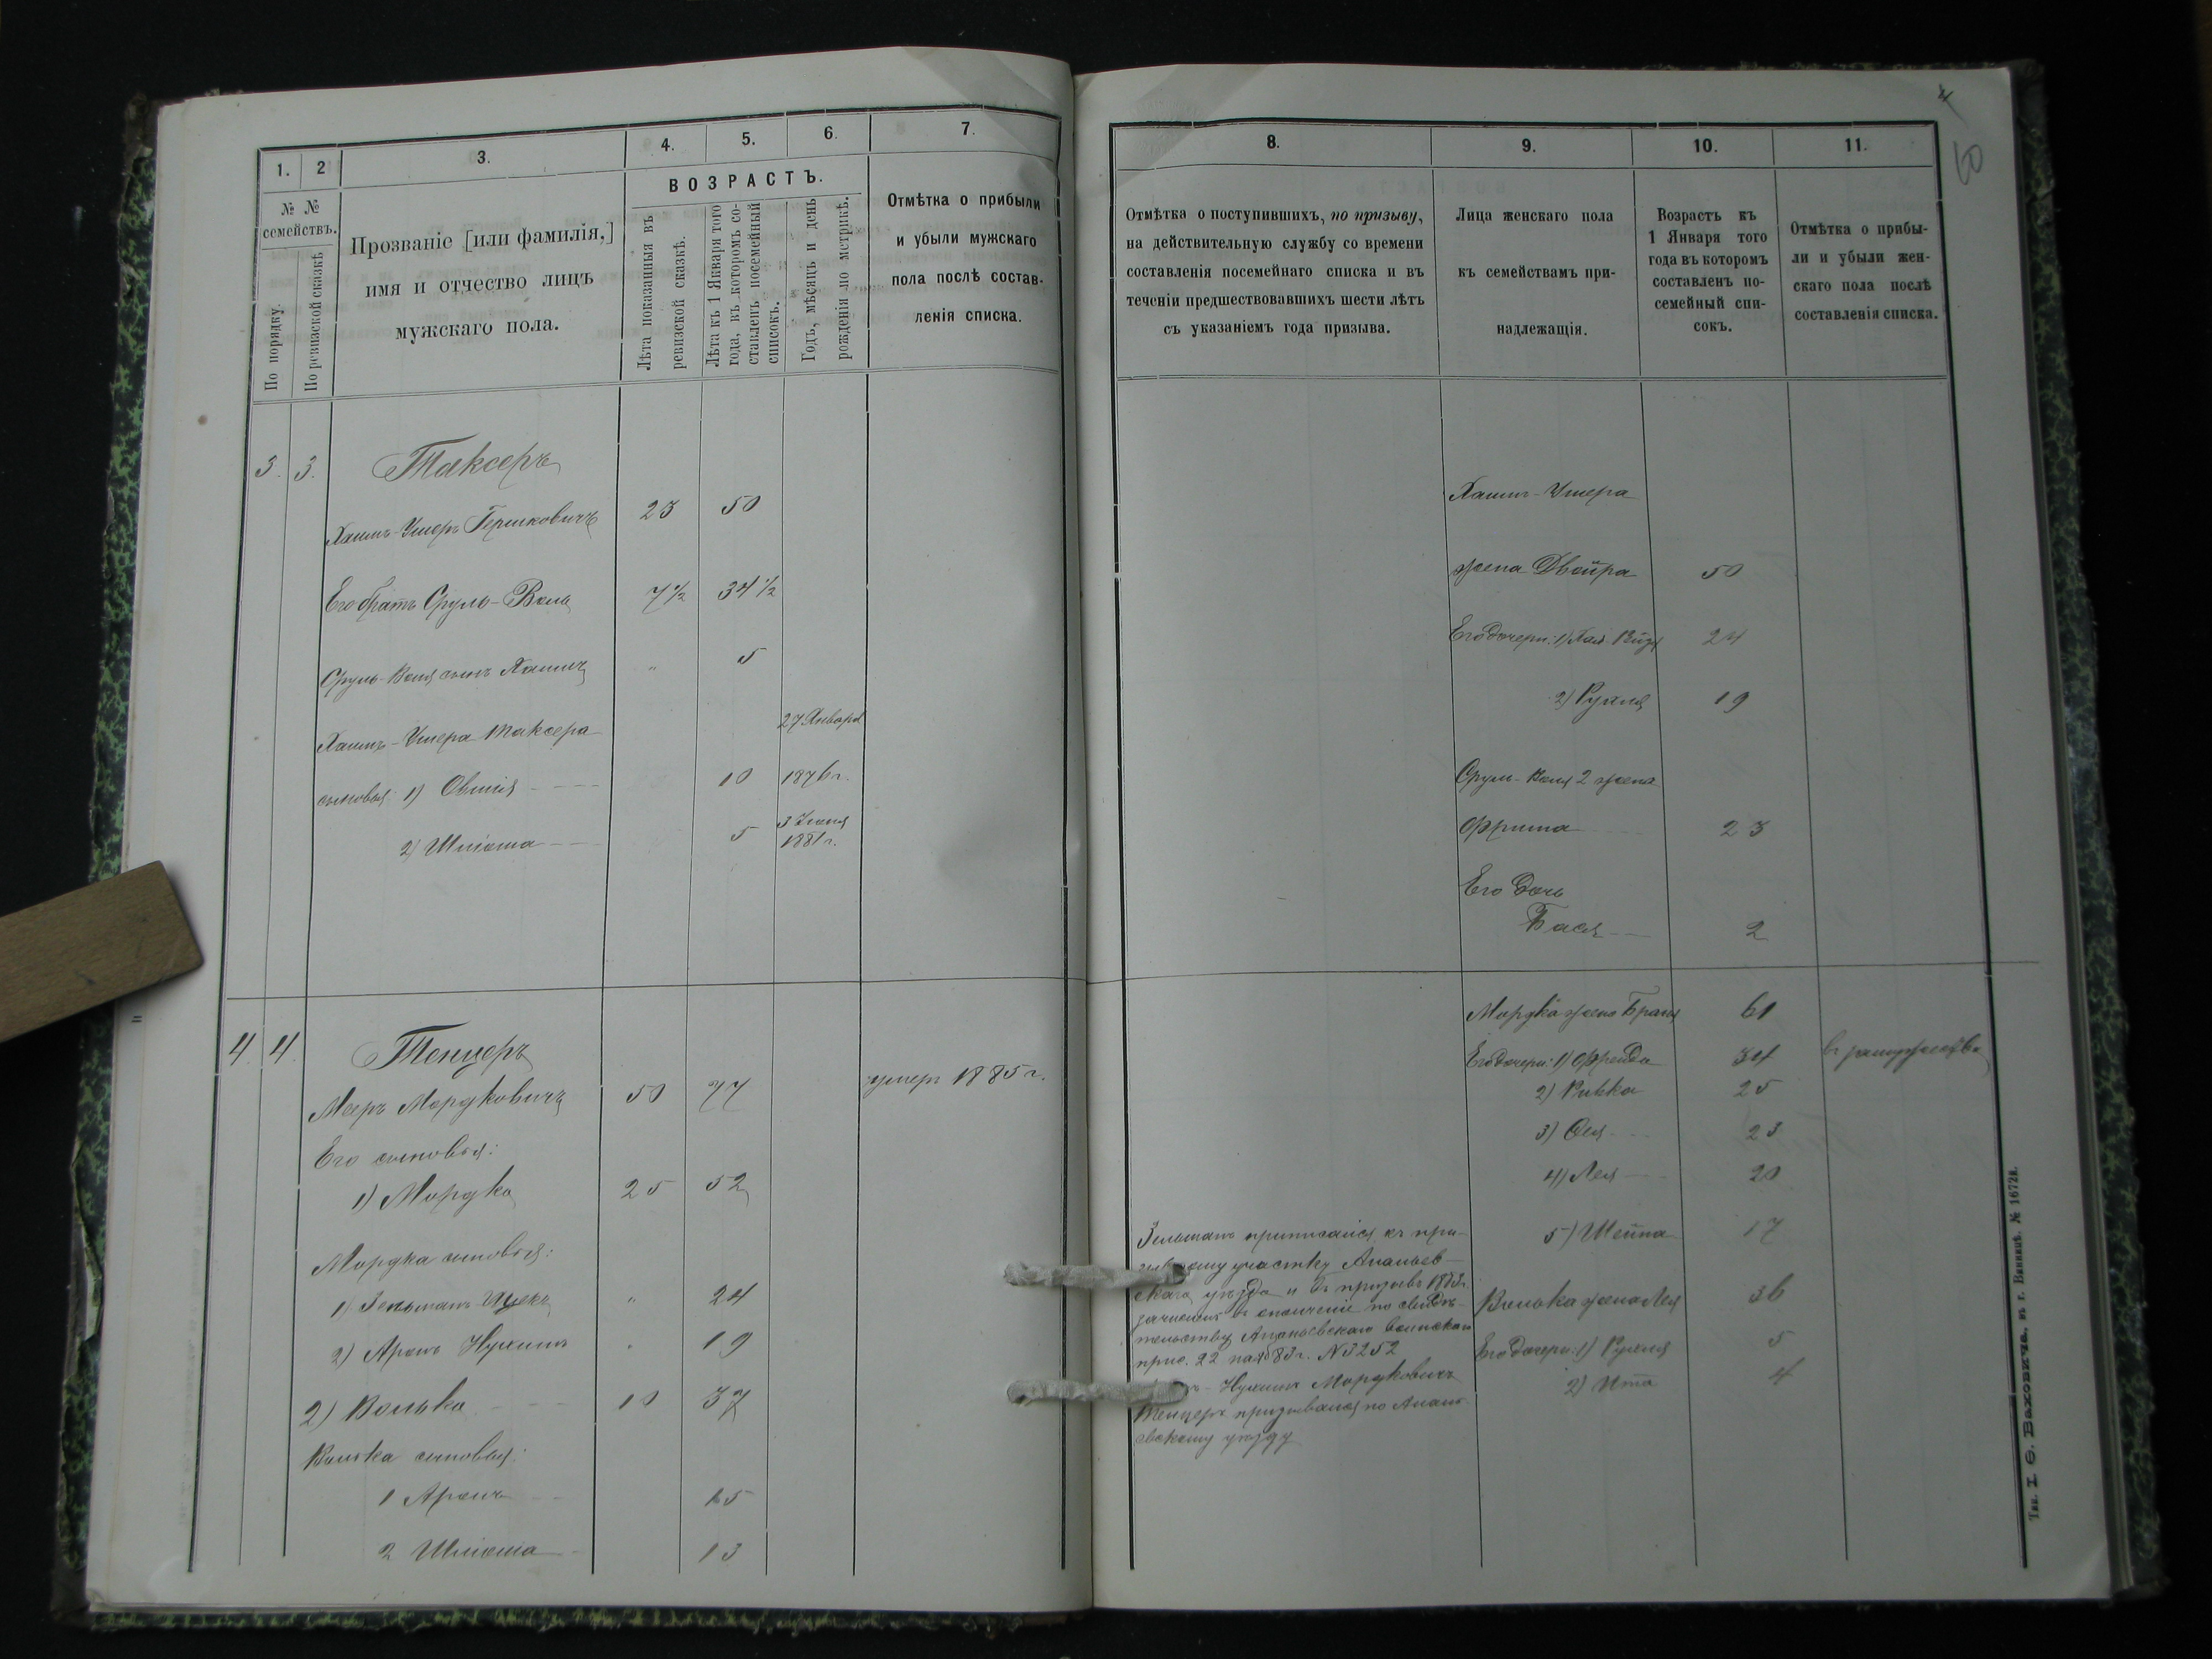 1.
2
3.
4.
5.
6.
7.
№ №
семействъ.
По порядку.
По ревизской сказкѣ
Прозваніе [или фамилія,]
имя и отчество лицъ
мужскаго пола.
ВОЗРАСТЪ.
Лѣта показанныя въ
ревизской сказкѣ.
Лѣта къ 1 Января того
года, въ которомъ со-
ставленъ посемейный
списокъ.
Годъ, мѣсяцъ и день
рожденія по метрикѣ.
Отмѣтка о прибыли
и убыли мужскаго
пола послѣ состав-
ленія списка.
3. 3. Таксеръ
Хаимъ-Умеръ Гершковичъ 23 50
Его братъ Сруль-Вель 7½ 34½
Сруль-Веля сынъ Хаимъ " 5
Хаимъ-Умера Таксера
27 Января
сыновья 1) Овшія 10 1876 г.
2) Шліома 5
3 Іюня
1881 г.
4. 4. Тенцеръ
Мееръ Мордковичъ 50 77 умеръ 1885 г.
Его сыновья:
1) Мордко 25 52
Мордка сыновья:
1) Зельманъ-Ицекъ " 24
2) Аронъ Нухимъ " 19
2) Волько 10 37
Волька сыновья:
1 Аронъ 15
2 Шліома 13
4
60
8.
9.
10.
11.
Отмѣтка о поступившихъ, по призыву,
на дѣйствительную службу со времени
составленія посемейнаго списка и въ
теченіи предшествовавшихъ шести лѣтъ
съ указаніемъ года призыва.
Лица женскаго пола
къ семействамъ при-
надлежащія.
Возрастъ къ
1 Января того
года въ которомъ
составленъ по-
семейный спи-
сокъ.
Отмѣтка о прибы-
ли и убыли жен-
скаго пола послѣ
составленія списка.
Хаимъ-Умера
жена Двойра 50
Его дочери: 1) Хая 24
2) Рухля 19
Сруль-Веля 2 жена
Фрима 23
Его дочь
Бася 2
Мордка жена Брана 61
Его дочери: 1) Фрейда 34 въ замужествѣ
2) Ривка 25
3) 23
4) Лея 20
5) Шейна 17
Зельманъ приписался къ при-
участку Ананьев-
скаго уѣзда и въ призывъ 1883 г.
зачисленъ въ ополченіе по свидѣ-
тельству Ананьевскаго воинскаго
прис. 22 нояб 83 г. № 3252
Нухимъ Мордковичъ
Тенцеръ призывался по Анань-
евскому уѣзду
Волька жена Лея 36
Его дочери: 1) Рухля 5
2) Ита 4
Тип. І. Ѳ. Ваховича, въ г. Винницѣ. № 1672й.